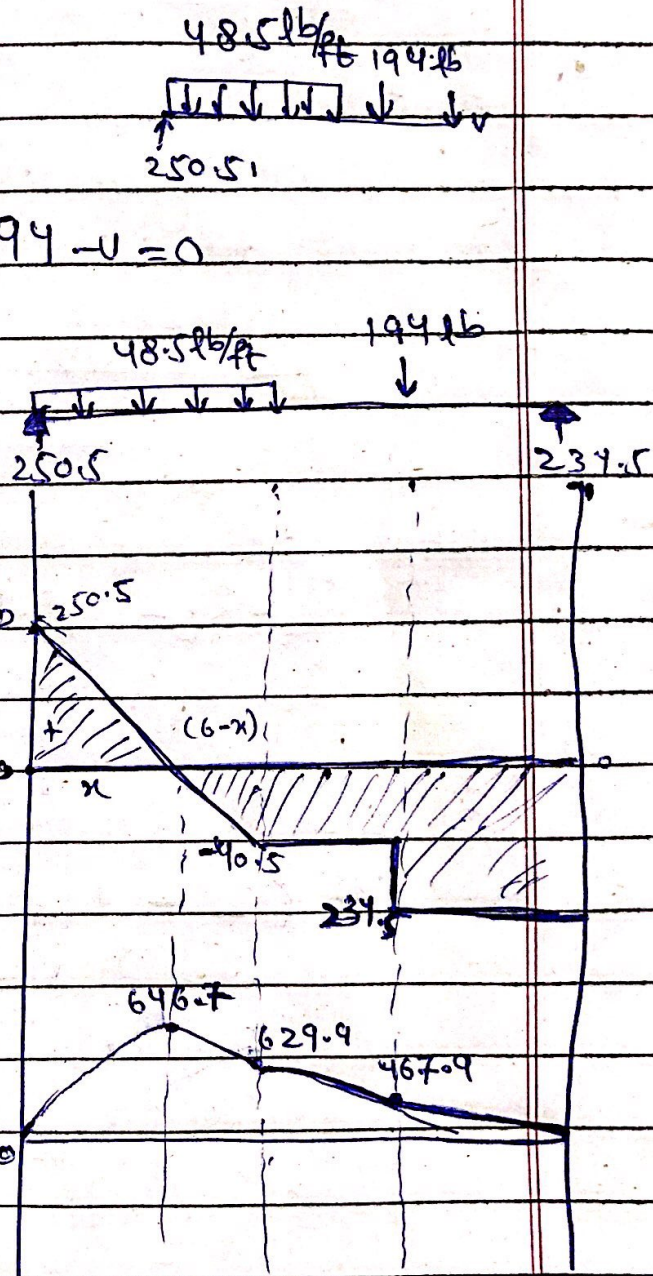 48.5 lb/ft 194 lb
v
250.51
94 - v = 0
48.5 lb/ft 194 lb
250.5 234.5
250.5
+ (6-x)
x 0
-40.5
234.5
646.7
629.9
467.9
0